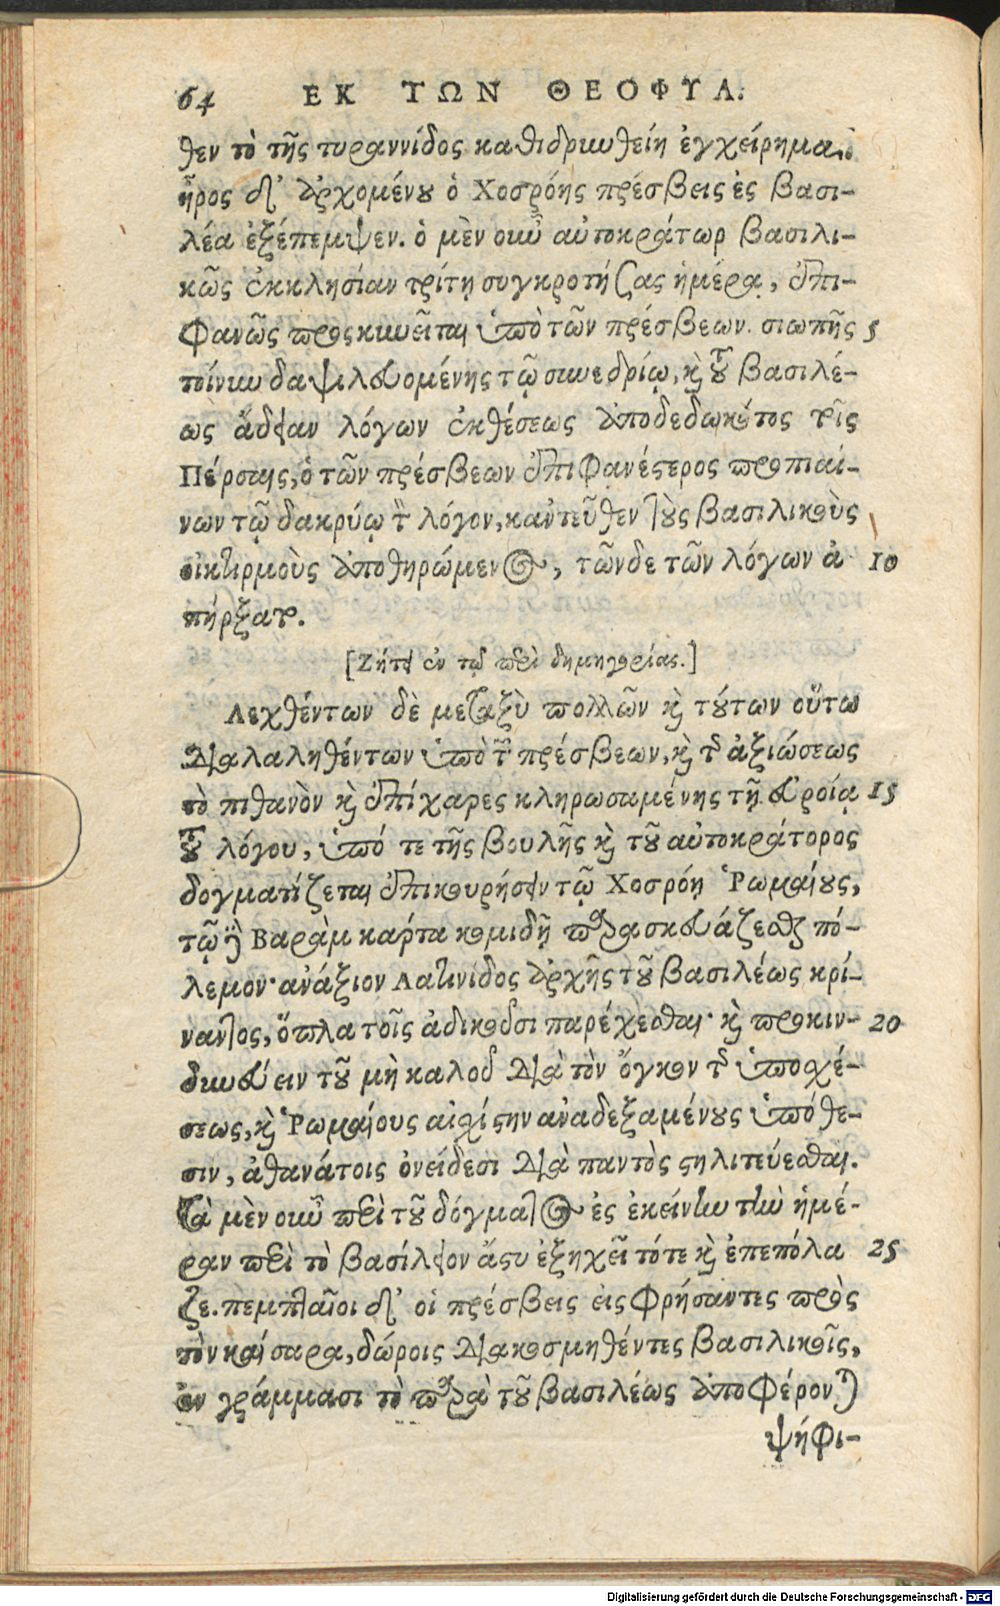 64 ΕΚ ΤΩΝ ΘΕΟΦΥΛ.
θεν τὸ τῆς τυραννίδος καθιδρυνθείη ἐγχείρημα.
ἦρος δ᾽ ἀρχομένου ὁ Χοσρόης πρέσβεις ἐς βασι-
λέα ἐξέπεμψεν. ὁ μὲν οὖν αὐτοκράτωρ βασιλι-
κῶς ἐκκλησίαν τρίτῃ συγκροτήσας ἡμέρᾳ, ἐπι-
φανῶς προσκυνεῖται ὑπὸ τῶν πρέσβεων. σιωπῆς 5
τοίνυν δαψιλευομένης τῷ συνεδρίῳ, καὶ τοῦ βασιλέ-
ως ἄδειαν λόγων ἐκθέσεως ἀποδεδωκότος τοῖς
Πέρσαις, ὁ τῶν πρέσβεων ἐπιφανέστερος προπιαί-
νων τῷ δακρύῳ τὸν λόγον, κἀντεῦθεν τοὺς βασιλικοὺς
οἰκτιρμοὺς ἀποθηρώμενος, τῶνδε τῶν λόγων ἀ 10
πήρξατο.
[Ζήτει ἐν τῷ περὶ δημηγορίας.]
Λεχθέντων δὲ μεταξὺ πολλῶν καὶ τούτων οὕτω
διαλαληθέντων ὑπὸ τῶν πρέσβεων, καὶ τῆς ἀξιώσεως
τὸ πιθανὸν καὶ ἐπίχαρες κληρωσαμένης τῇ εὐροίᾳ 15
τοῦ λόγου, ὑπό τε τῆς βουλῆς καὶ τοῦ αὐτοκράτορος
δογματίζεται ἐπικουρήσειν τῷ Χοσρόῃ Ῥωμαίους,
τῷ δὲ Βαρὰμ κάρτα κομιδῇ παρασκευάζεσθαι πό-
λεμον· ἀνάξιον Λατινίδος ἀρχῆς τοῦ βασιλέως κρί-
ναντος, ὅπλα τοῖς ἀδικοῦσι παρέχεσθαι· καὶ προκιν- 20
δυνεύειν τοῦ μὴ καλοῦ διὰ τὸν ὄγκον τῆς ὑποσχέ-
σεως, καὶ Ῥωμαίους αἰσχίστην ἀναδεξαμένους ὑπόθε-
σιν, ἀθανάτοις ὀνείδεσι διὰ παντὸς στηλιτεύεσθαι.
τὰ μὲν οὖν περὶ τοῦ δόγματος ἐς ἐκείνην τὴν ἡμέ-
ραν περὶ τὸ βασίλειον ἄστυ ἐξηχεῖτό τε καὶ ἐπεπόλα 25
ζε. πεμπταῖοι δ᾽ οἱ πρέσβεις εἰσφρήσαντες πρὸς
τὸν καίσαρα, δώροις διακοσμηθέντες βασιλικοῖς,
ἐν γράμμασι τὸ παρὰ τοῦ βασιλέως ἀποφέρονται
ψήφι-
Digitalisierung gefördert durch die Deutsche Forschungsgemeinschaft - DFG